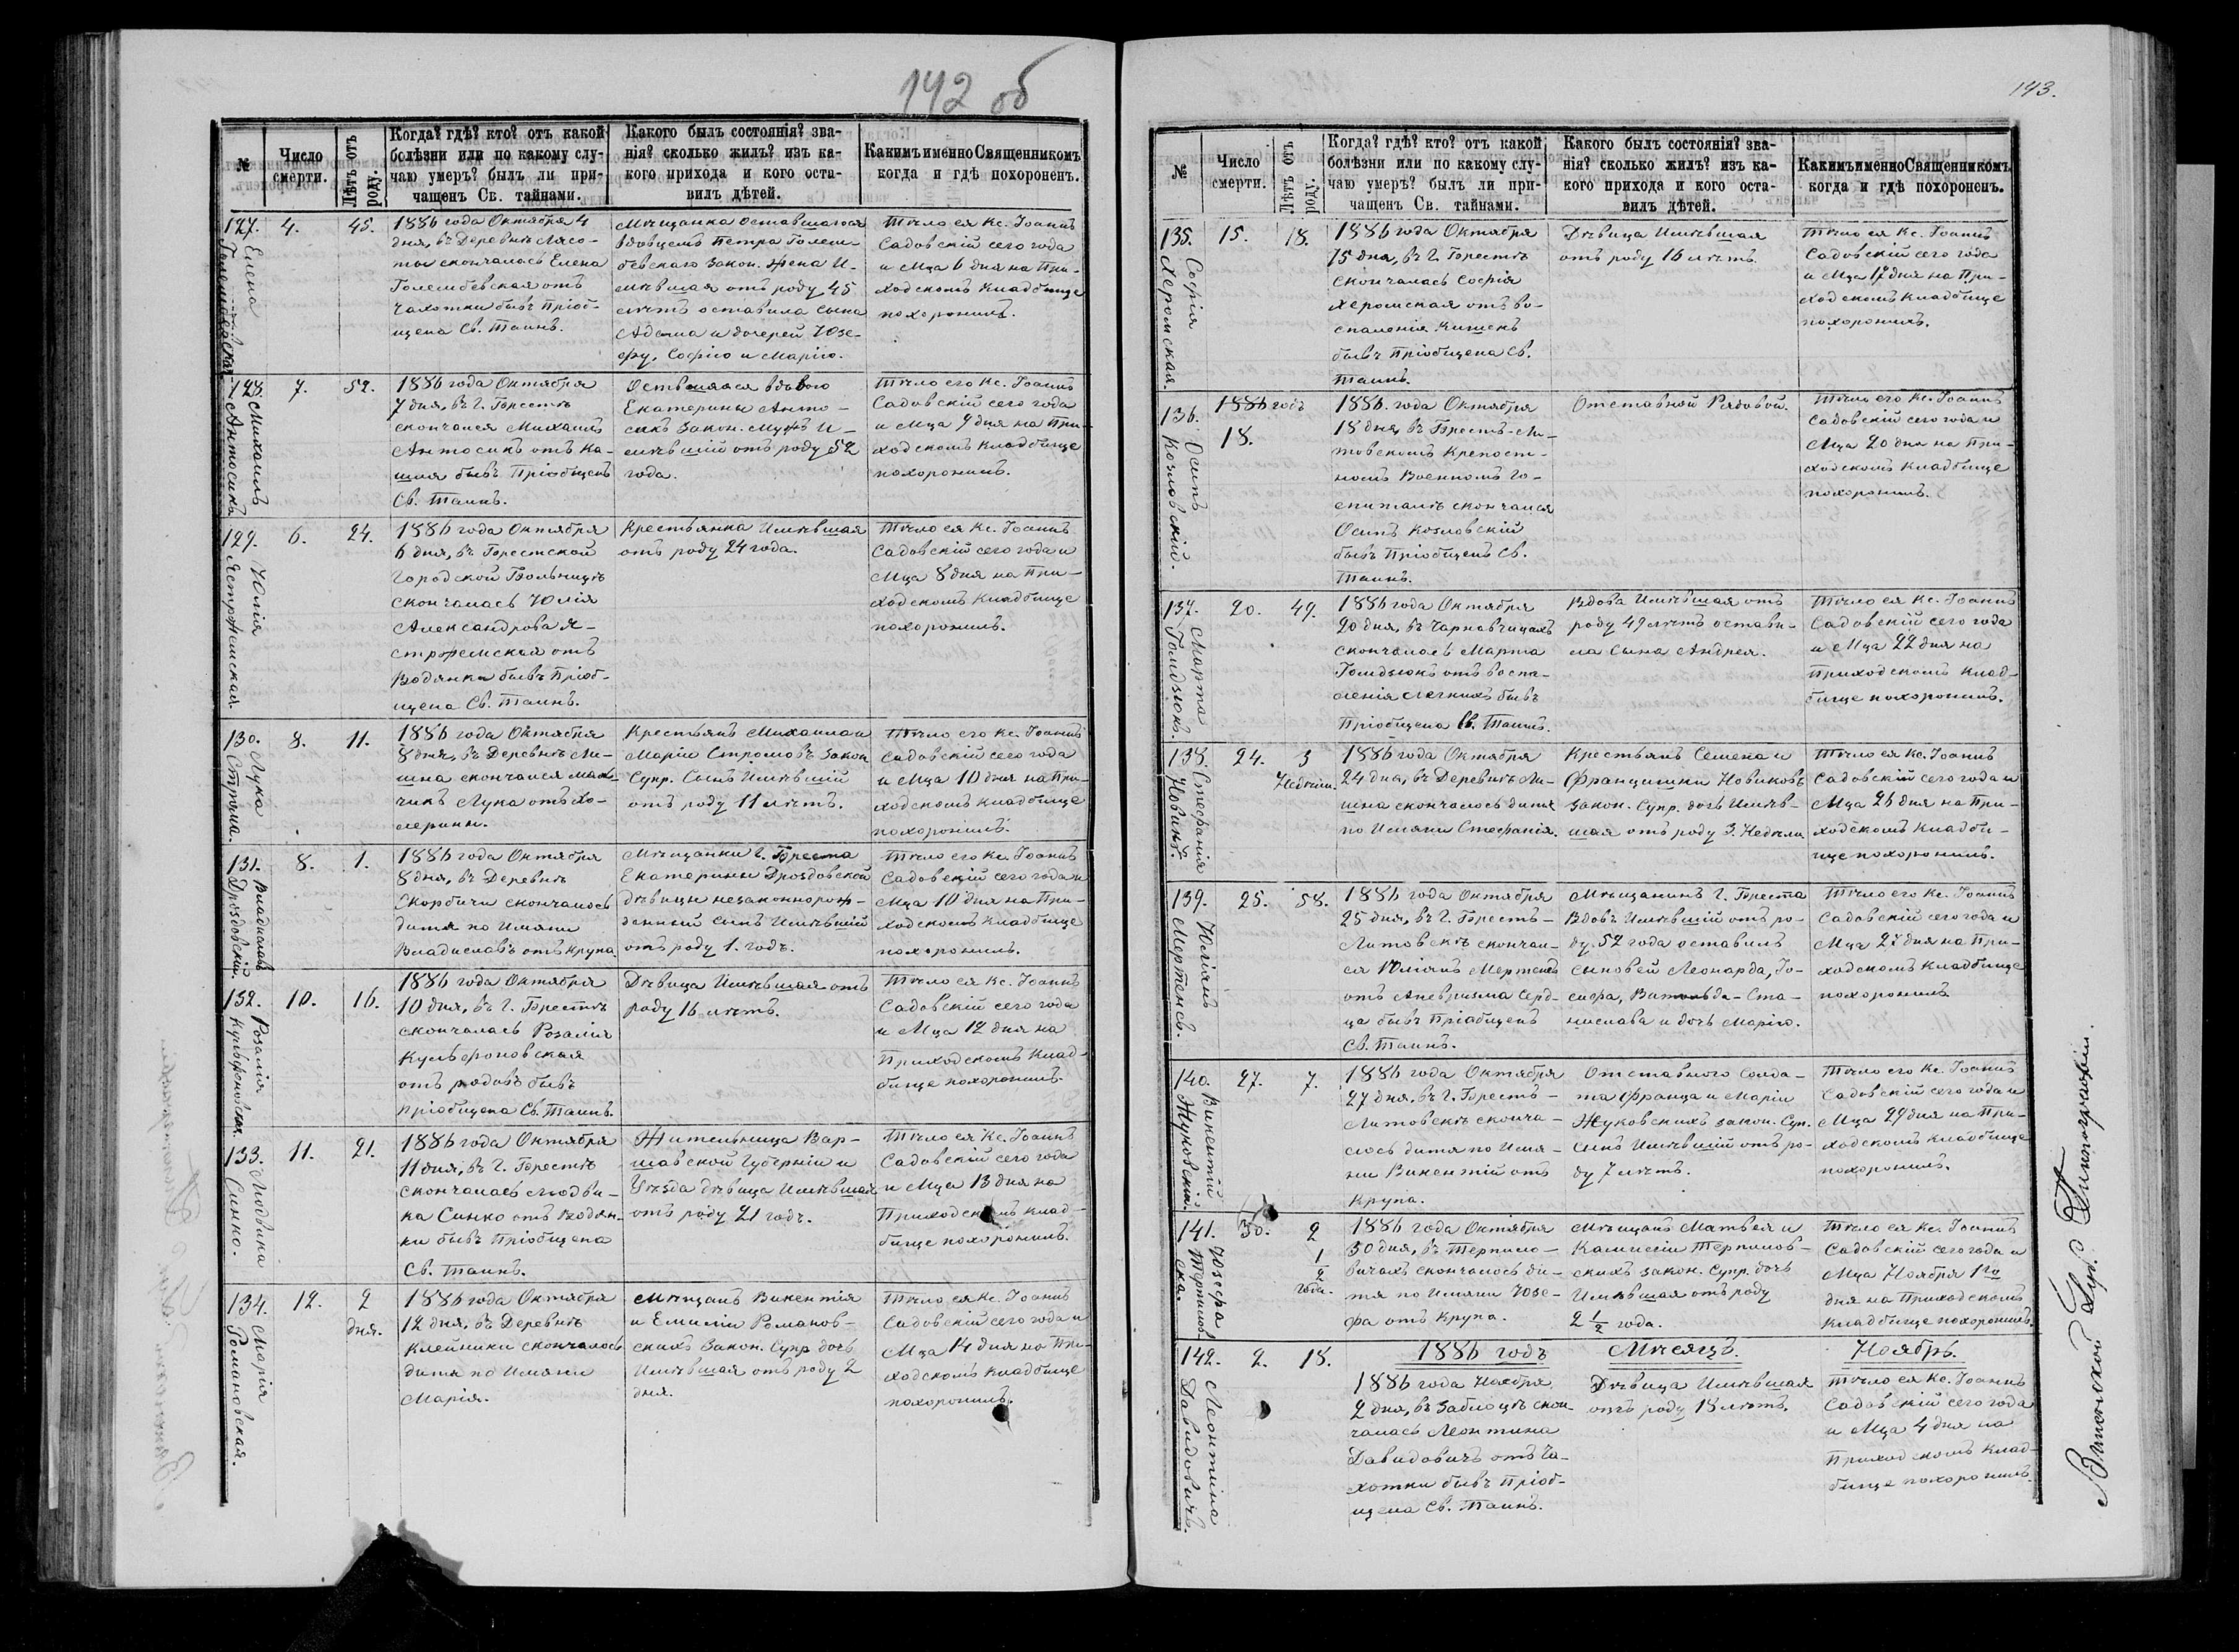 142 об
№
Число смерти.
Лѣтъ отъ роду.
Когда? гдѣ? кто? отъ какой
болѣзни или по какому слу-
чаю умеръ? былъ ли при-
чащенъ Св. тайнами.
Какого былъ состоянія? зва-
нія? сколько жилъ? изъ ка-
кого прихода и кого оста-
вилъ дѣтей.
Какимъ именно Священникомъ
когда и гдѣ похороненъ.
127.
Елена
4.
45.
1886 года Октября 4
дня, въ Деревнѣ Лясо-
ты скончалась Елена
Голембевская отъ
чахотки бывъ Пріоб-
щена Св. Таинъ.
Мѣщанка оставшагося
вдовцемъ Петра Голем-
бевскаго закон. Жена И-
мѣвшая отъ роду 45
лѣтъ оставила сына
Адама и дочерей Юзе-
фу, Софію и Марію.
Тѣло ея Кс. Іоаннъ
Садовскій сего года
и Мца 6 дня на При-
ходскомъ Кладбище
похоронилъ.
128. Михаилъ
Антосикъ
7.
52.
1886 года Октября
7 дня, въ Г. Брестѣ
скончался Михаилъ
Антосикъ отъ Ка-
шля бывъ Пріобщенъ
Св. Таинъ.
Оставшаяся вдовою
Екатерины Анто-
сикъ Закон. Мужъ И-
мѣвшій отъ роду 52
года.
Тѣло его Кс. Іоаннъ
Садовскій сего года
и Мца 9 дня на При-
ходскомъ Кладбище
похоронилъ.
129. Юлія
Ястржемская.
6.
24.
1886 года Октября
6 дня, въ Брестской
Городской Больницѣ
скончалась Юлія
Александрова Я-
стржемская отъ
Водянки бывъ Пріоб-
щена Св. Таинъ.
Крестьянка Имѣвшая
отъ роду 24 года.
Тѣло ея Кс. Іоаннъ
Садовскій сего года и
Мца 8 дня на При-
ходскомъ Кладбище
похоронилъ.
130. Лука
Строма.
8.
11.
1886 года Октября
8 дня, въ Деревнѣ Ли-
шна скончался маль-
чикъ Лука отъ Хо-
лерины.
Крестьянъ Михаила и
Маріи Стромовъ закон
Супр. Сынъ Имѣвшій
отъ роду 11 лѣтъ.
Тѣло его Кс. Іоаннъ
Садовскій сего года
и Мца 10 дня на При-
ходскомъ Кладбище
похоронилъ.
131. Владиславъ
Дроздовскій.
8.
1.
1886 года Октября
8 дня, въ Деревнѣ
Скорбичи скончалось
дитя по Имяни
Владиславъ отъ крупа.
Мѣщанки Г. Бреста
Екатерины Дроздовской
дѣвицы незаконнорож-
денный сынъ Имѣвшій
отъ роду 1. годъ.
Тѣло его Кс. Іоаннъ
Садовскій сего года и
Мца 10 дня на При-
ходскомъ Кладбище
похоронилъ.
132. Розалія
10.
16.
1886 года Октября
10 дня, въ Г. Брестѣ
скончалась Розалія
отъ родовъ бывъ
Пріобщена Св. Таинъ.
Дѣвица Имѣвшая отъ
роду 16 лѣтъ.
Тѣло ея Кс. Іоаннъ
Садовскій сего года
и Мца 12 дня на
Приходскомъ Клад-
бище похоронилъ.
133. Людвика
Синко.
11.
21.
1886 года Октября
11 дня, въ Г. Брестѣ
скончалась Людви-
ка Синко отъ Водян-
ки бывъ Пріобщена
Св. Таинъ.
Жительница Вар-
шавской Губерніи и
Уѣзда дѣвица Имѣвшая
отъ роду 21 годъ.
Тѣло ея Кс. Іоаннъ
Садовскій сего года
и Мца 13 дня на
Приходскомъ Клад-
бище похоронилъ.
134. Марія
Романовская.
12.
2
дня.
1886 года Октября
12 дня, въ Деревнѣ
Клейники скончалось
дитя по Имяни
Марія.
Мѣщанъ Викентія
и Емиліи Романов-
скихъ Закон. Супр. дочь
Имѣвшая отъ роду 2
дня.
Тѣло ея Кс. Іоаннъ
Садовскій сего года и
Мца 14 дня на При-
ходскомъ Кладбище
похоронилъ.
143.
№
Число смерти.
Лѣтъ отъ роду.
Когда? гдѣ? кто? отъ какой
болѣзни или по какому слу-
чаю умеръ? былъ ли при-
чащенъ Св. тайнами.
Какого былъ состоянія? зва-
нія? сколько жилъ? изъ ка-
кого прихода и кого оста-
вилъ дѣтей.
Какимъ именно Священникомъ
когда и гдѣ похороненъ.
135. Софія
Херомская.
15.
18.
1886 года Октября
15 дня, въ Г. Брестѣ
скончалась Софія
Херомская отъ во-
спаленія Кишекъ
бывъ Пріобщена Св.
Таинъ.
Дѣвица Имѣвшая
отъ роду 16 лѣтъ.
Тѣло ея Кс. Іоаннъ
Садовскій сего года
и Мца 17 дня на При-
ходскомъ Кладбище
похоронилъ.
136. Осипъ
Козловскій.
1886 годъ
18.
1886. года Октября
18 дня, въ Брестъ-Ли-
товскомъ Крепост-
номъ Военномъ Го-
спиталѣ скончался
Осипъ Козловскій
бывъ Пріобщенъ Св.
Таинъ.
Отставной Рядовой.
Тѣло его Кс. Іоаннъ
Садовскій сего года и
Мца 20 дня на При-
ходскомъ Кладбище
похоронилъ.
137. Марта
Гомдзюкъ.
20.
49.
1886 года Октября
20 дня, въ Чарнавчицахъ
скончалась Марта
Гомдзюкъ отъ воспа-
ленія легкихъ бывъ
Пріобщена Св. Таинъ.
Вдова Имѣвшая отъ
роду 49 лѣтъ остави-
ла сына Андрея.
Тѣло ея Кс. Іоаннъ
Садовскій сего года
и Мца 22 дня на
Приходскомъ Клад-
бище похоронилъ.
138. Стефанія
Новикъ.
24.
3
Недѣли.
1886 года Октября
24 дня, въ Деревнѣ Ли-
шна скончалось дитя
по Имяни Стефанія.
Крестьянъ Семена и
Францишки Новиковъ
закон. Супр. дочь Имѣв-
шая отъ роду 3. Недѣли
Тѣло ея Кс. Іоаннъ
Садовскій сего года и
Мца 26 дня на При-
ходскомъ Кладби-
ще похоронилъ.
139. Юліянъ
Мертенсъ.
25.
58.
1886 года Октября
25 дня, въ Г. Брестъ-
Литовскѣ скончал-
ся Юліянъ Мертенсъ
отъ Аневризма Серд-
ца бывъ Пріобщенъ
Св. Таинъ.
Мѣщанинъ Г. Бреста
Вдовъ Имѣвшій отъ ро-
ду 52 года оставилъ
сыновей Леонарда, Іо-
сифа, Витольда-Ста-
нислава и дочь Марію.
Тѣло его Кс. Іоаннъ
Садовскій сего года и
Мца 27 дня на При-
ходскомъ Кладбище
похоронилъ
140. Викентій
Жуковскій.
27.
7.
1886 года Октября
27 дня, въ Г. Брестъ-
Литовскѣ сконча-
лось дитя по Имя-
ни Викентій отъ
Крупа.
Отставного Солда-
та Франца и Маріи
Жуковскихъ закон. Суп.
сынъ Имѣвшій отъ ро-
ду 7 лѣтъ.
Тѣло его Кс. Іоаннъ
Садовскій сего года и
Мца 29 дня на При-
ходскомъ Кладбище
похоронилъ.
141. Юзефа
30.
2 1/2
года.
1886 года Октября
30 дня, въ Терпило-
вичахъ скончалось ди-
тя по Имяни Юзе-
фа отъ Крупа.
Мѣщанъ Матвея и
Камиліи Терпилов-
скихъ закон. Супр. дочь
Имѣвшая отъ роду
2 1/2 года.
Тѣло ея Кс. Іоаннъ
Садовскій сего года и
Мца Ноября 1го
дня на Приходскомъ
Кладбище похоронилъ.
1886 годъ Мѣсяцъ. Ноябрь.
142. Леонтина
Давидовичъ.
2.
18.
1886 года Ноября
2 дня, въ Заблоцѣ скон-
чалась Леонтина
Давидовичъ отъ Ча-
хотки бывъ Пріоб-
щена Св. Таинъ.
Дѣвица Имѣвшая
отъ роду 18 лѣтъ.
Тѣло ея Кс. Іоаннъ
Садовскій сего года
и Мца 4 дня на
Приходскомъ Клад-
бище похоронилъ.